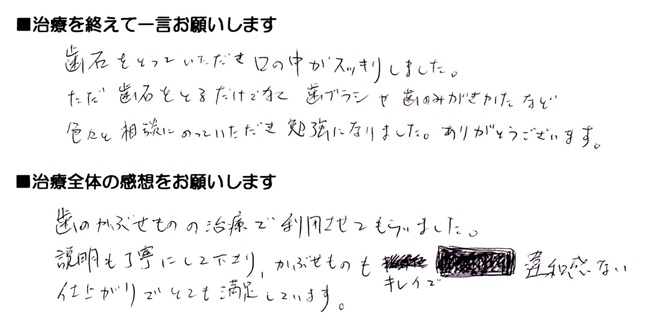 ■治療を終えて一言お願いします
歯石をとっていただき口の中がスッキリしました。
ただ歯石をとるだけでなく歯ブラシや歯のみがきかたなど
色々と相談にのっていただき勉強になりました。ありがとうございます。
■治療全体の感想をお願いします
歯のかぶせものの治療で利用させてもらいました。
説明も丁寧にして下さり、かぶせものもキレイで違和感ない
仕上がりでとても満足しています。